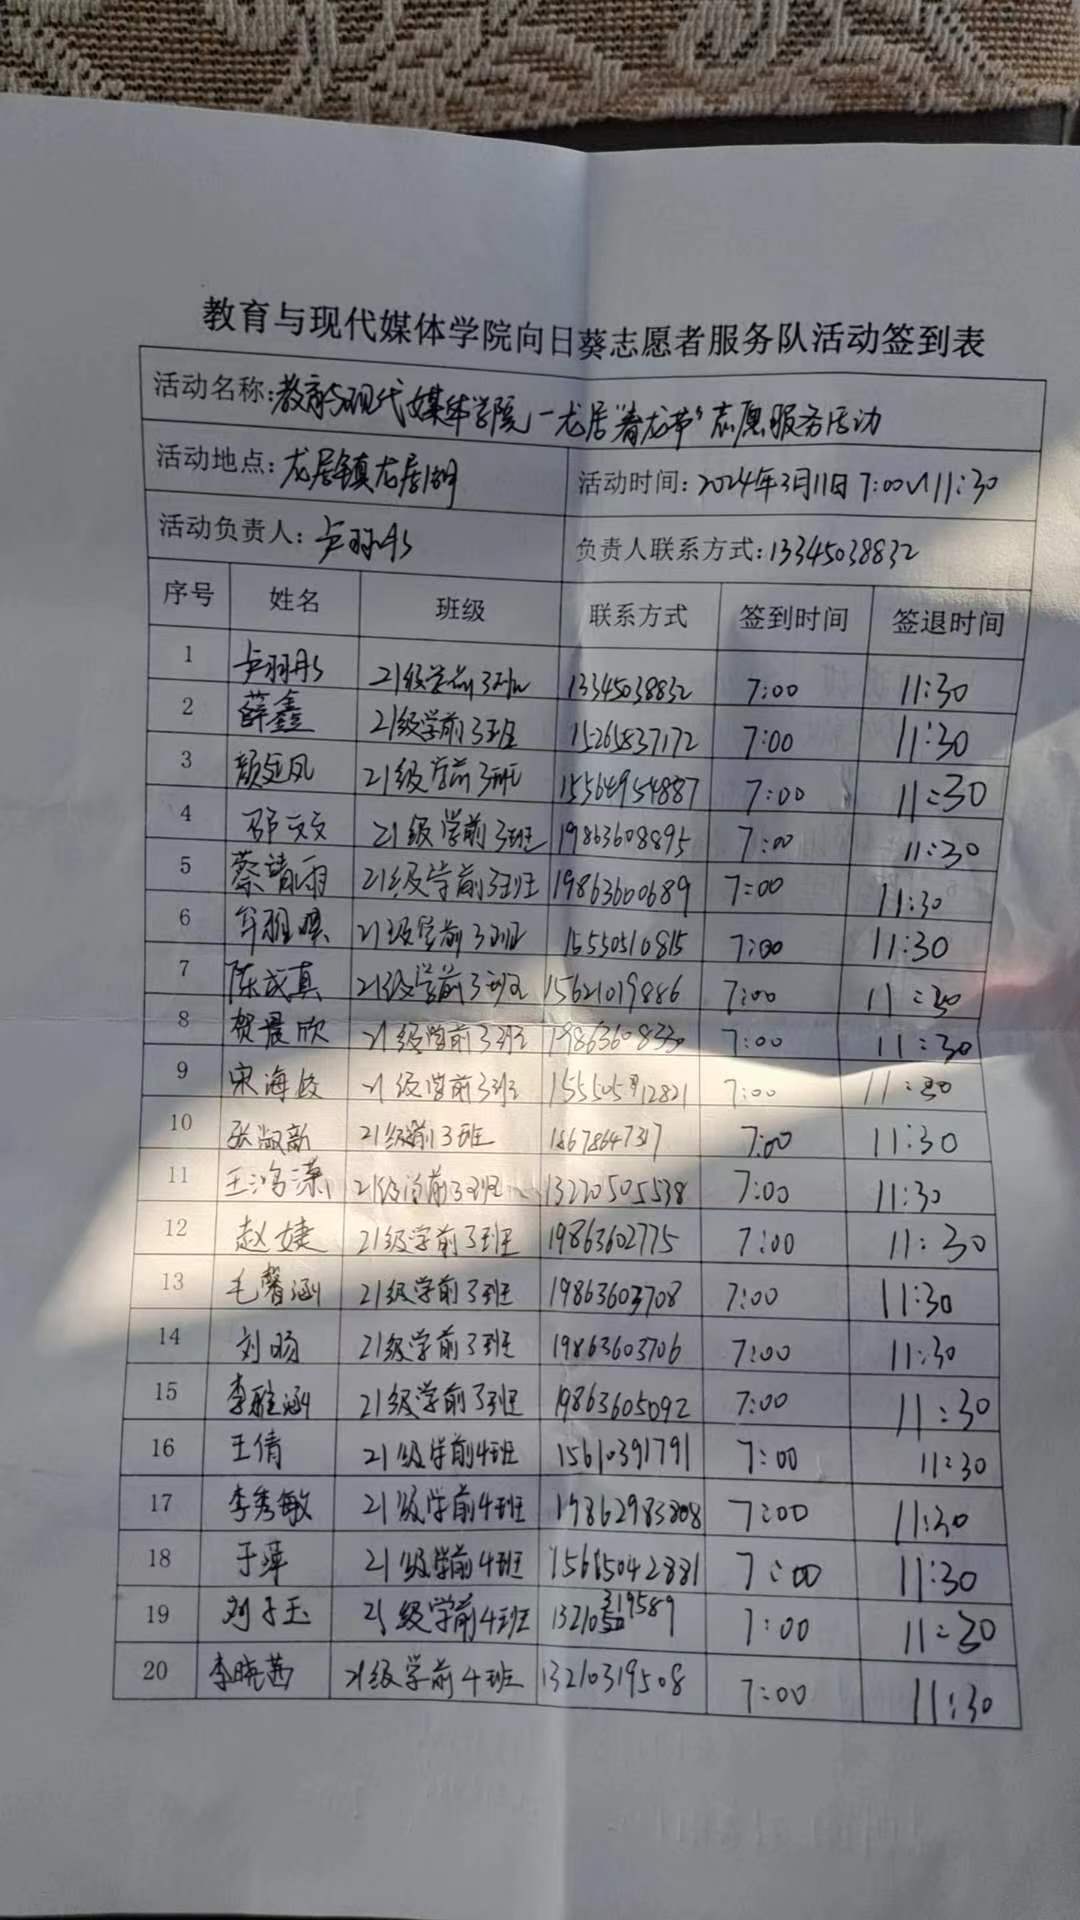 教育与现代媒体学院向日葵志愿者服务队活动签到表
活动名称:教育与现代媒体学院一龙居"春龙节"志愿服务活动
活动地点:龙居镇龙居湖 活动时间:2024年3月11日 7:00~11:30
活动负责人:卢羽彤 负责人联系方式:13345038832
序号 姓名 班级 联系方式 签到时间 签退时间
1 卢羽彤 21级学前3班 13345038832 7:00 11:30
2 薛鑫 21级学前3班 15265837172 7:00 11:30
3 颜廷凤 21级学前3班 15564954887 7:00 11:30
4 邵文文 21级学前3班 19863608895 7:00 11:30
5 蔡清雨 21级学前3班 19863600689 7:00 11:30
6 牟 21级学前3班 15550510815 7:00 11:30
7 陈成真 21级学前3班 15621019886 7:00 11:30
8 贺晨欣 21级学前3班 19863608330 7:00 11:30
9 宋海 21级学前3班 7:00 11:30
10 张淑新 21级学前3班 7:00 11:30
11 王鸿潇 21级学前3班 13220505538 7:00 11:30
12 赵婕 21级学前3班 19863602775 7:00 11:30
13 毛馨涵 21级学前3班 19863603708 7:00 11:30
14 刘旸 21级学前3班 19863603706 7:00 11:30
15 李雅涵 21级学前3班 19863605092 7:00 11:30
16 王倩 21级学前4班 15610391791 7:00 11:30
17 李秀敏 21级学前4班 19862983808 7:00 11:30
18 于萍 21级学前4班 15615042881 7:00 11:30
19 刘子玉 21级学前4班 13210319589 7:00 11:30
20 李晓茜 21级学前4班 13210319508 7:00 11:30